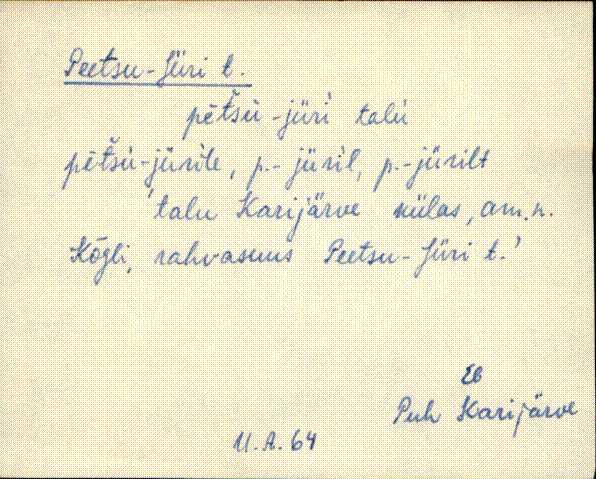 Peetsu-Jüri t.
pētšu-jüri talu
pētšu-jürile, p.-jüril, p.-jürilt
'talu Karijärve külas, am.n.
Kõgli, rahvasuus Peetsu-Jüri t.'
Eb
Puh Karijärve
U.A. 64